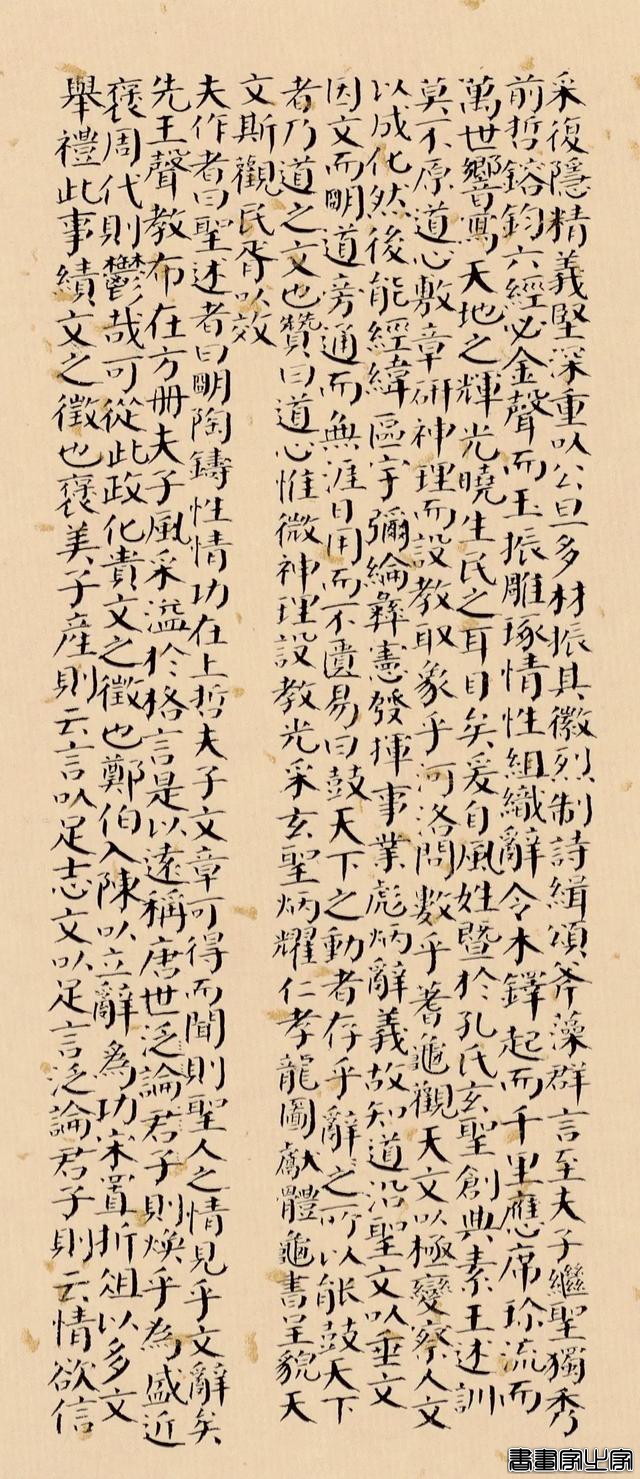 采復隱精義堅深重以公旦多材振其徽烈制詩緝頌斧藻群言至夫子繼聖獨秀
前哲鎔鈞六經必金聲而玉振雕琢情性組織辭令木鐸起而千里應席珍流而
萬世響寫天地之輝光曉生民之耳目矣爰自風姓暨於孔氏玄聖創典素王述訓
莫不原道心敷章研神理而設教取象乎河洛問數乎蓍龜觀天文以極變察人文
以成化然後能經緯區宇彌綸彝憲發揮事業彪炳辭義故知道沿聖文以垂文
因文而明道旁通而無涯日用而不匱易曰鼓天下之動者存乎辭之所以能鼓天下
者乃道之文也贊曰道心惟微神理設教光采玄聖炳耀仁孝龍圖獻體龜書呈貌天
文斯觀民胥以效
夫作者曰聖述者曰明陶鑄性情功在上哲夫子文章可得而聞則聖人之情見乎文辭矣
先王聲教布在方冊夫子風采溢於格言是以遠稱唐世泛論君子則煥乎為盛近
褒周代則鬱哉可從此政化貴文之徵也鄭伯入陳以立辭為功宋置折俎以多文
舉禮此事績文之徵也褒美子產則云言以足志文以足言泛論君子則云情欲信
書畫家出字